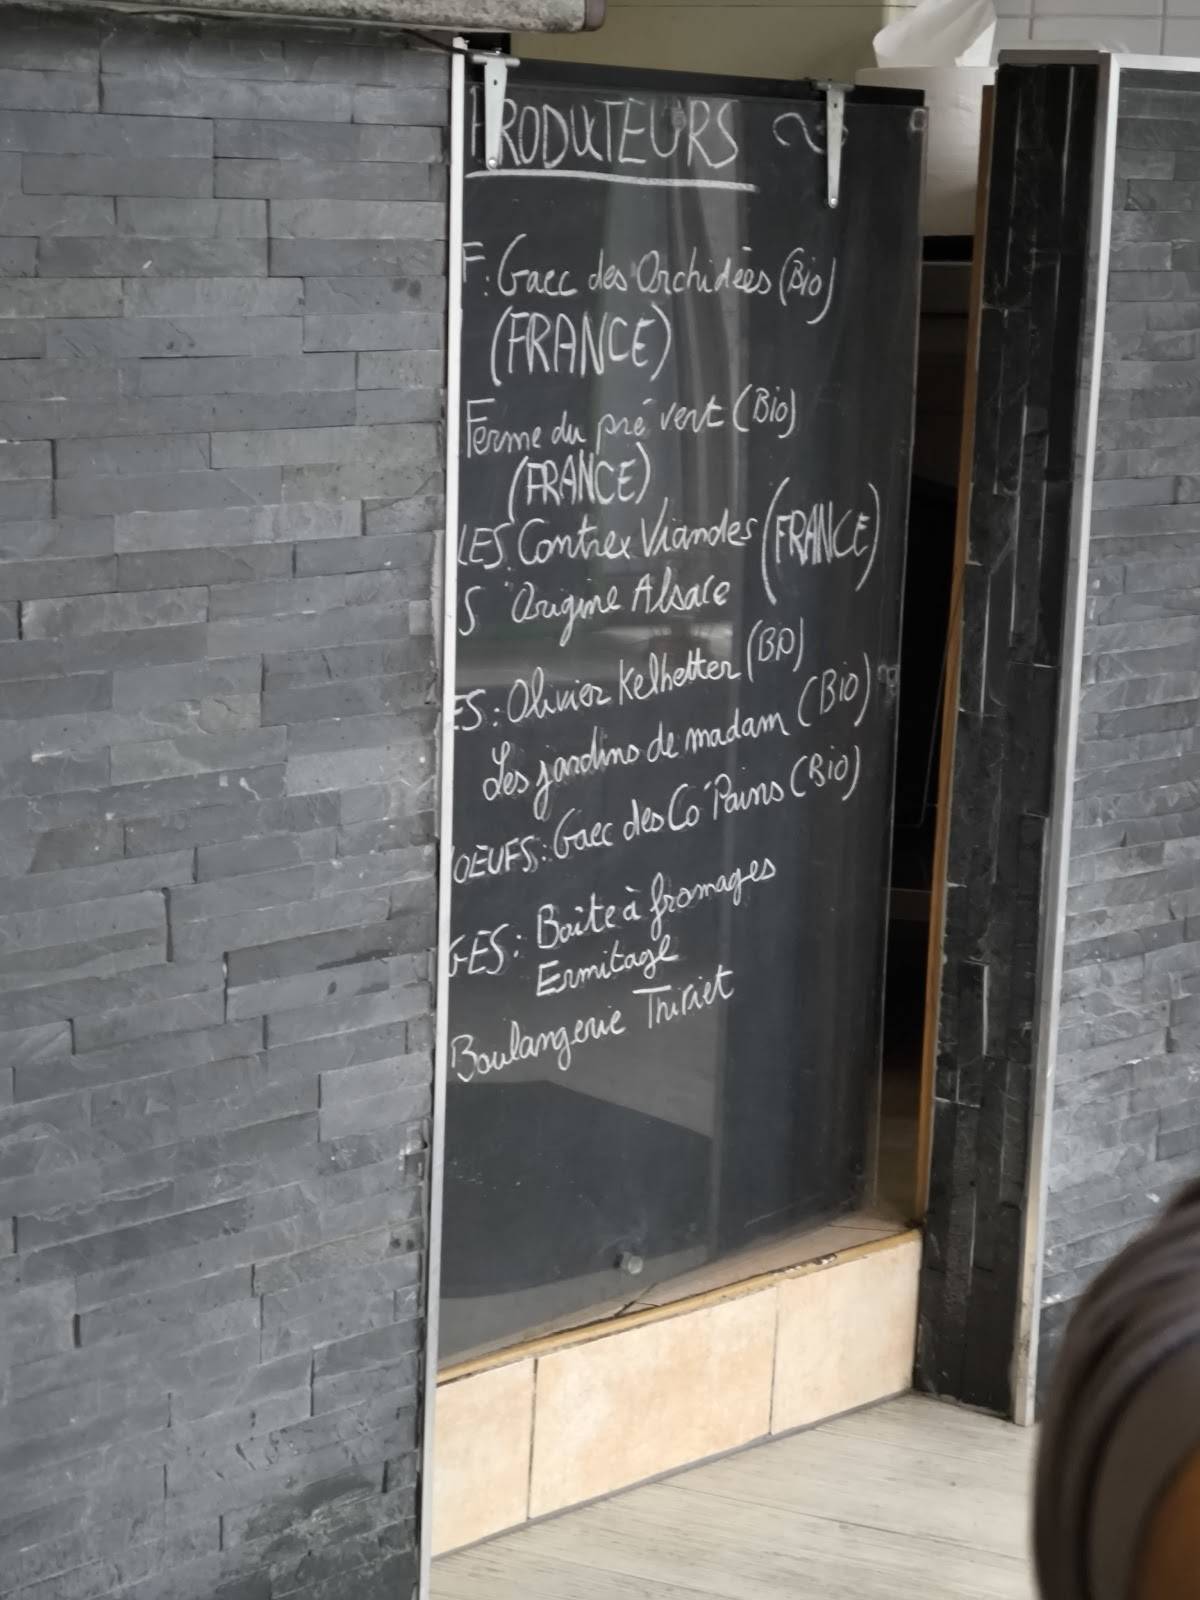 PRODUCTEURS
F: Gaec des Orchidées (Bio)
(FRANCE)
Ferme du pré vert (Bio)
(FRANCE)
LES Contrex Viandes (FRANCE)
S Origine Alsace
ES: Olivier Kelhetter (Bio)
Les jardins de madam (Bio)
OEUFS: Gaec des Co'Pains (Bio)
GES: Boite à fromages
Ermitage
Boulangerie Thiriet